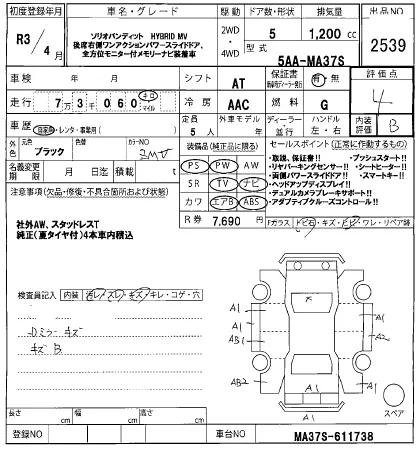 初度登録年月 車名・グレード 駆動 ドア数・形状 排気量 出品NO
R3/4月 ソリオバンディット HYBRID MV 2WD・4WD 5 1,200 cc 2539
後席右側ワンアクションパワースライドドア、
全方位モニター付メモリーナビ装着車
型式 5AA-MA37S
車検 年 月 日 シフト AT 保証書 有・無 評価点
走行 7万3千060 キロ マイル 冷房 AAC 燃料 G 4
車歴 自家用・レンタ・事業用( ) 定員 5人 外車モデル 年 ディーラー 並行 ハンドル 左・右 内装評価 B
外色 元色 ブラック 色替 カラーNO ZMV
装備品(純正品に限る) セールスポイント(正常に作動するもの)
名義変更期限 月 日迄 積載 t
PS PW AW
SR TV ナビ
カワ エアB ABS
R券 7,690 円
・取説、保証書!! ・プッシュスタート!!
・リヤパーキングセンサー!! ・シートヒーター!!
・両側パワースライドドア!! ・スマートキー!!
・ヘッドアップディスプレイ!!
・デュアルカメラブレーキサポート!!
・アダプティブクルーズコントロール!!
注意事項(欠品・修復・不具合箇所および状態)
社外AW、スタッドレスT
純正(夏タイヤ付)4本車内積込
Fガラス 飛び石・キズ・ヒビ・ワレ・リペア跡
検査員記入 内装 汚レ・スレ・キズ・キレ・コゲ・穴
Dミラー キズ
キズ B
A1
A1
A1
AB1
A2
AB2
A1
A1
スペア
長さ cm 幅 cm 高さ cm
登録NO 車台NO MA37S-611738